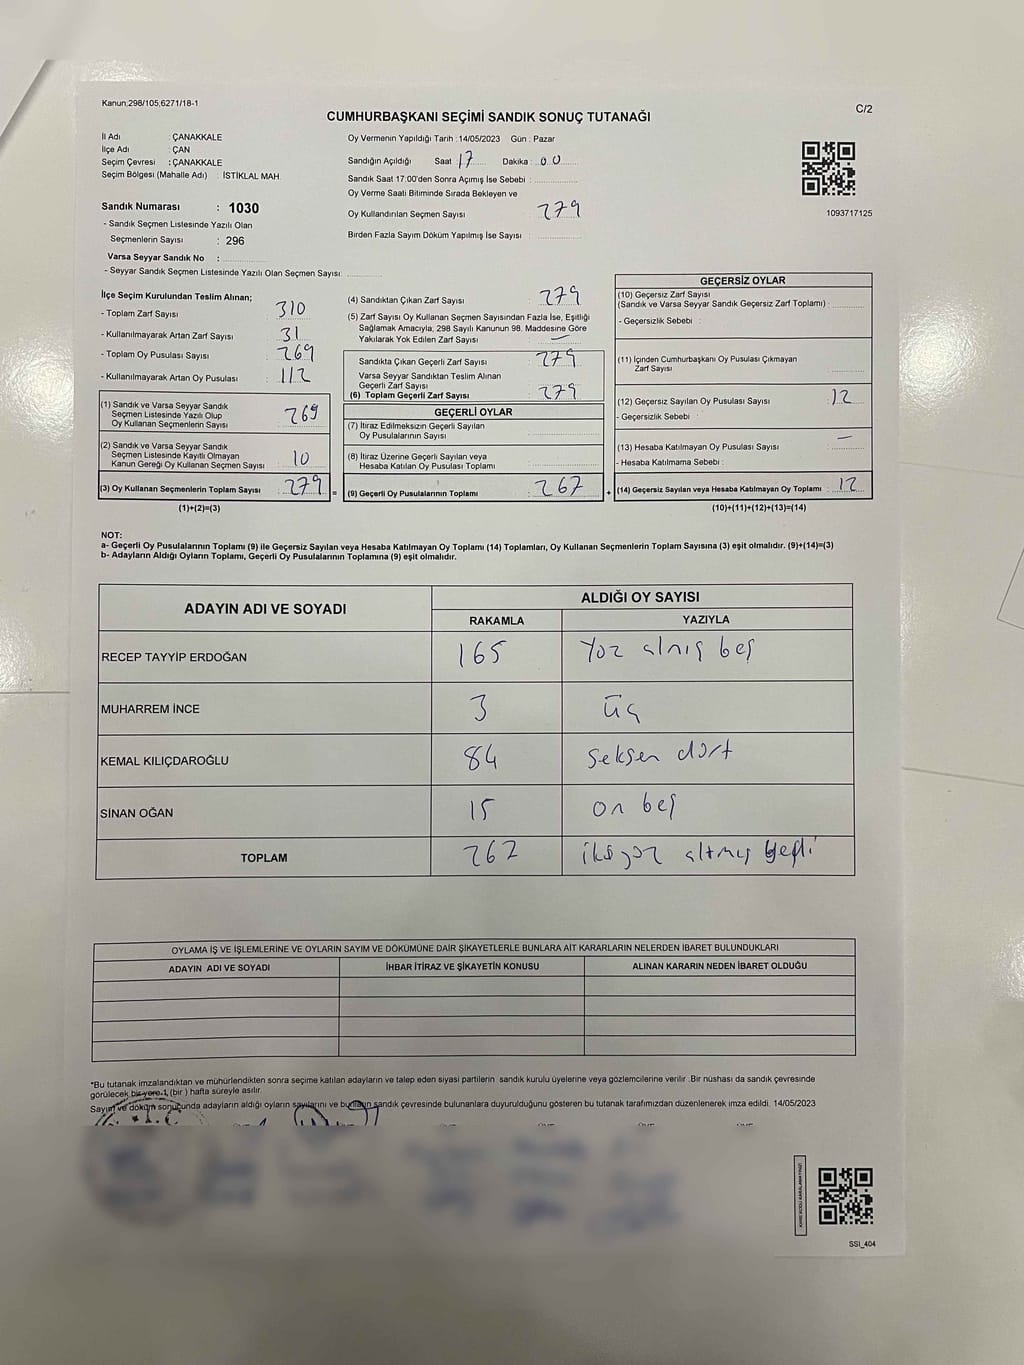 Kanun;298/105;6271/18-1
C/2
CUMHURBAŞKANI SEÇİMİ SANDIK SONUÇ TUTANAĞI
İl Adı : ÇANAKKALE
İlçe Adı : ÇAN
Seçim Çevresi : ÇANAKKALE
Seçim Bölgesi (Mahalle Adı) : İSTİKLAL MAH.
Sandık Numarası : 1030
- Sandık Seçmen Listesinde Yazılı Olan
Seçmenlerin Sayısı : 296
Varsa Seyyar Sandık No :
- Seyyar Sandık Seçmen Listesinde Yazılı Olan Seçmen Sayısı:
Oy Vermenin Yapıldığı Tarih :14/05/2023 Gün : Pazar
Sandığın Açıldığı Saat 17 Dakika : 00
Sandık Saat 17:00'den Sonra Açımış İse Sebebi :
Oy Verme Saati Bitiminde Sırada Bekleyen ve
Oy Kullandırılan Seçmen Sayısı : 279
Birden Fazla Sayım Döküm Yapılmış İse Sayısı :
1093717125
İlçe Seçim Kurulundan Teslim Alınan;
- Toplam Zarf Sayısı : 310
- Kullanılmayarak Artan Zarf Sayısı : 31
- Toplam Oy Pusulası Sayısı : 269
- Kullanılmayarak Artan Oy Pusulası : 112
(1) Sandık ve Varsa Seyyar Sandık
Seçmen Listesinde Yazılı Olup
Oy Kullanan Seçmenlerin Sayısı : 269
(2) Sandık ve Varsa Seyyar Sandık
Seçmen Listesinde Kayıtlı Olmayan
Kanun Gereği Oy Kullanan Seçmen Sayısı : 10
(3) Oy Kullanan Seçmenlerin Toplam Sayısı : 279
(1)+(2)=(3)
(4) Sandıktan Çıkan Zarf Sayısı : 279
(5) Zarf Sayısı Oy Kullanan Seçmen Sayısından Fazla İse, Eşitliği
Sağlamak Amacıyla, 298 Sayılı Kanunun 98. Maddesine Göre
Yakılarak Yok Edilen Zarf Sayısı : —
Sandıkta Çıkan Geçerli Zarf Sayısı : 279
Varsa Seyyar Sandıktan Teslim Alınan
Geçerli Zarf Sayısı :
(6) Toplam Geçerli Zarf Sayısı : 279
GEÇERLİ OYLAR
(7) İtiraz Edilmeksizin Geçerli Sayılan
Oy Pusulalarının Sayısı :
(8) İtiraz Üzerine Geçerli Sayılan veya
Hesaba Katılan Oy Pusulası Toplamı :
= (9) Geçerli Oy Pusulalarının Toplamı : 267
GEÇERSİZ OYLAR
(10) Geçersiz Zarf Sayısı
(Sandık ve Varsa Seyyar Sandık Geçersiz Zarf Toplamı) :
- Geçersizlik Sebebi :
(11) İçinden Cumhurbaşkanı Oy Pusulası Çıkmayan
Zarf Sayısı :
(12) Geçersiz Sayılan Oy Pusulası Sayısı : 12
- Geçersizlik Sebebi :
(13) Hesaba Katılmayan Oy Pusulası Sayısı : —
- Hesaba Katılmama Sebebi :
+ (14) Geçersiz Sayılan veya Hesaba Katılmayan Oy Toplamı : 12
(10)+(11)+(12)+(13)=(14)
NOT:
a- Geçerli Oy Pusulalarının Toplamı (9) ile Geçersiz Sayılan veya Hesaba Katılmayan Oy Toplamı (14) Toplamları, Oy Kullanan Seçmenlerin Toplam Sayısına (3) eşit olmalıdır. (9)+(14)=(3)
b- Adayların Aldığı Oyların Toplamı, Geçerli Oy Pusulalarının Toplamına (9) eşit olmalıdır.
ADAYIN ADI VE SOYADI
ALDIĞI OY SAYISI
RAKAMLA YAZIYLA
RECEP TAYYİP ERDOĞAN 165 Yüz almış beş
MUHARREM İNCE 3 üç
KEMAL KILIÇDAROĞLU 84 Seksen dört
SİNAN OĞAN 15 on beş
TOPLAM 267 ikiyüz altmış yedi
OYLAMA İŞ VE İŞLEMLERİNE VE OYLARIN SAYIM VE DÖKÜMÜNE DAİR ŞİKAYETLERLE BUNLARA AİT KARARLARIN NELERDEN İBARET BULUNDUKLARI
ADAYIN ADI VE SOYADI İHBAR İTİRAZ VE ŞİKAYETİN KONUSU ALINAN KARARIN NEDEN İBARET OLDUĞU
*Bu tutanak imzalandıktan ve mühürlendikten sonra seçime katılan adayların ve talep eden siyasi partilerin sandık kurulu üyelerine veya gözlemcilerine verilir .Bir nüshası da sandık çevresinde
görülecek bir yere 1 (bir ) hafta süreyle asılır.
Sayım ve döküm sonucunda adayların aldığı oyların sayılarını ve bunların sandık çevresinde bulunanlara duyurulduğunu gösteren bu tutanak tarafımızdan düzenlenerek imza edildi. 14/05/2023
T.C
SSI_404